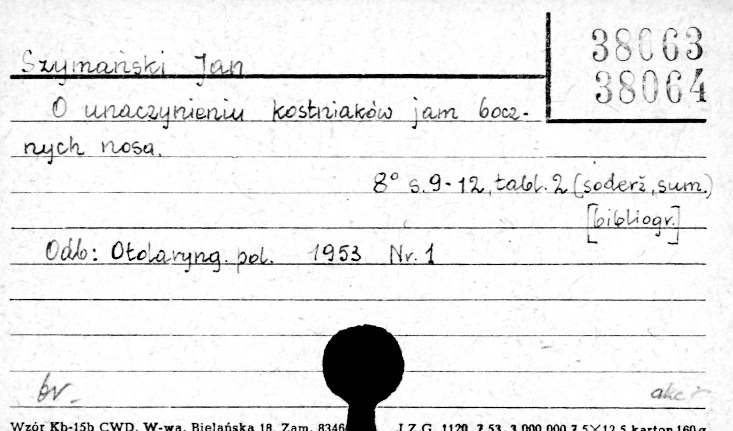 38063
38064
Szymański Jan
O unaczynieniu kostniaków jam bocz-
nych nosa.
8° s. 9-12, tabl. 2 (soderž, sum.)
[bibliogr.]
Odb: Otolaryng. pol. 1953 Nr. 1
br.
Wzór Kb-15b CWD, W-wa, Bielańska 18. Zam. J.Z.G. 1120 7.53. 3.000.000 7,5×12,5 karton 160 g